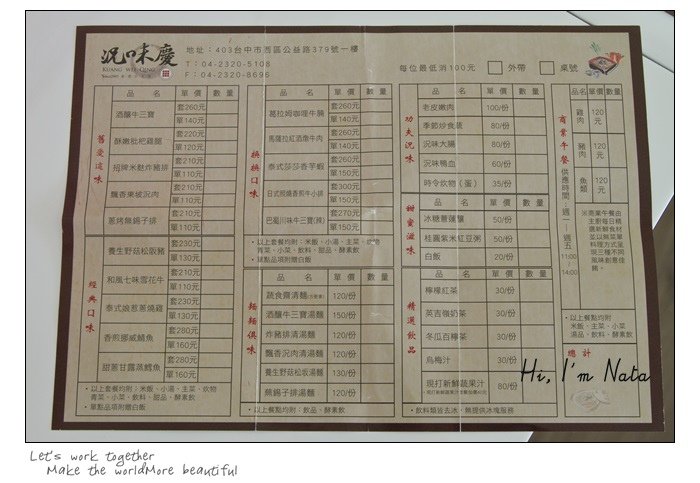 況味慶
KUANG WEI QING
地址：403台中市西區公益路379號一樓
T：04-2320-5108
F：04-2320-8696
每位最低消100元 外帶 桌號
舊愛這味
品名 單價 數量
酒釀牛三寶 套260元 單140元
酥嫩枇杷雞腿 套220元 單120元
招牌米麩炸豬排 套210元 單110元
飄香東坡沉肉 套210元 單110元
蔥烤無錫子排 套210元 單110元
經典口味
養生野菇松阪豬 套230元 單130元
和風七味雪花牛 套210元 單110元
泰式娘惹蔥燒雞 套230元 單130元
香煎挪威鯖魚 套280元 單160元
甜蔥甘露蒸鱈魚 套280元 單160元
・以上套餐均附：米飯、小湯、主菜、炊物
青菜、小菜、飲料、甜品、酵素飲
・單點品項附贈白飯
換換口味
品名 單價 數量
葛拉姆咖哩牛腩 套260元 單140元
馬薩拉紅酒燉牛肉 套260元 單140元
泰式莎莎香芋蝦 套260元 單150元
日式照燒香煎牛小排 套300元 單150元
巴蜀川味牛三寶(辣) 套270元 單150元
・以上套餐均附：米飯、小湯、主菜、炊物
青菜、小菜、飲料、甜品、酵素飲
・單點品項附贈白飯
麵麵俱味
品名 單價 數量
蔬食齋清麵 120/份
酒釀牛三寶湯麵 150/份
炸豬排清湯麵 120/份
飄香沉肉清湯麵 120/份
養生野菇松坂湯麵 130/份
無錫子排湯麵 120/份
・以上餐點均附：飲品、酵素飲
功夫沉味
品名 單價 數量
老皮嫩肉 100/份
季節炒食蔬 80/份
沉味大腸 80/份
沉味鴨血 60/份
時令炊物（蛋） 35/份
甜蜜滋味
品名 單價 數量
冰糖薏蓮蕹 50/份
桂圓紫米紅豆粥 50/份
白飯 20/份
精選飲品
品名 單價 數量
檸檬紅茶 30/份
英吉嶺奶茶 30/份
冬瓜百檸茶 30/份
烏梅汁 30/份
現打新鮮蔬果汁 80/份
・飲料類皆去冰、無提供冰塊服務
商業午餐
供應時間：週一～週五
11:00/14:00
品名 單價 數量
雞肉 120元
豬肉 120元
魚類 120元
※商業午餐由
主廚每日精
選新鮮食材
並以無菜單
料理方式呈
現三種不同
風味創意佳
餚！
・以上餐點均附
米飯、主菜、小菜
湯品、飲料、酵素飲
總計
Hi, I'm Nata
Let's work together
Make the worldMore beautiful